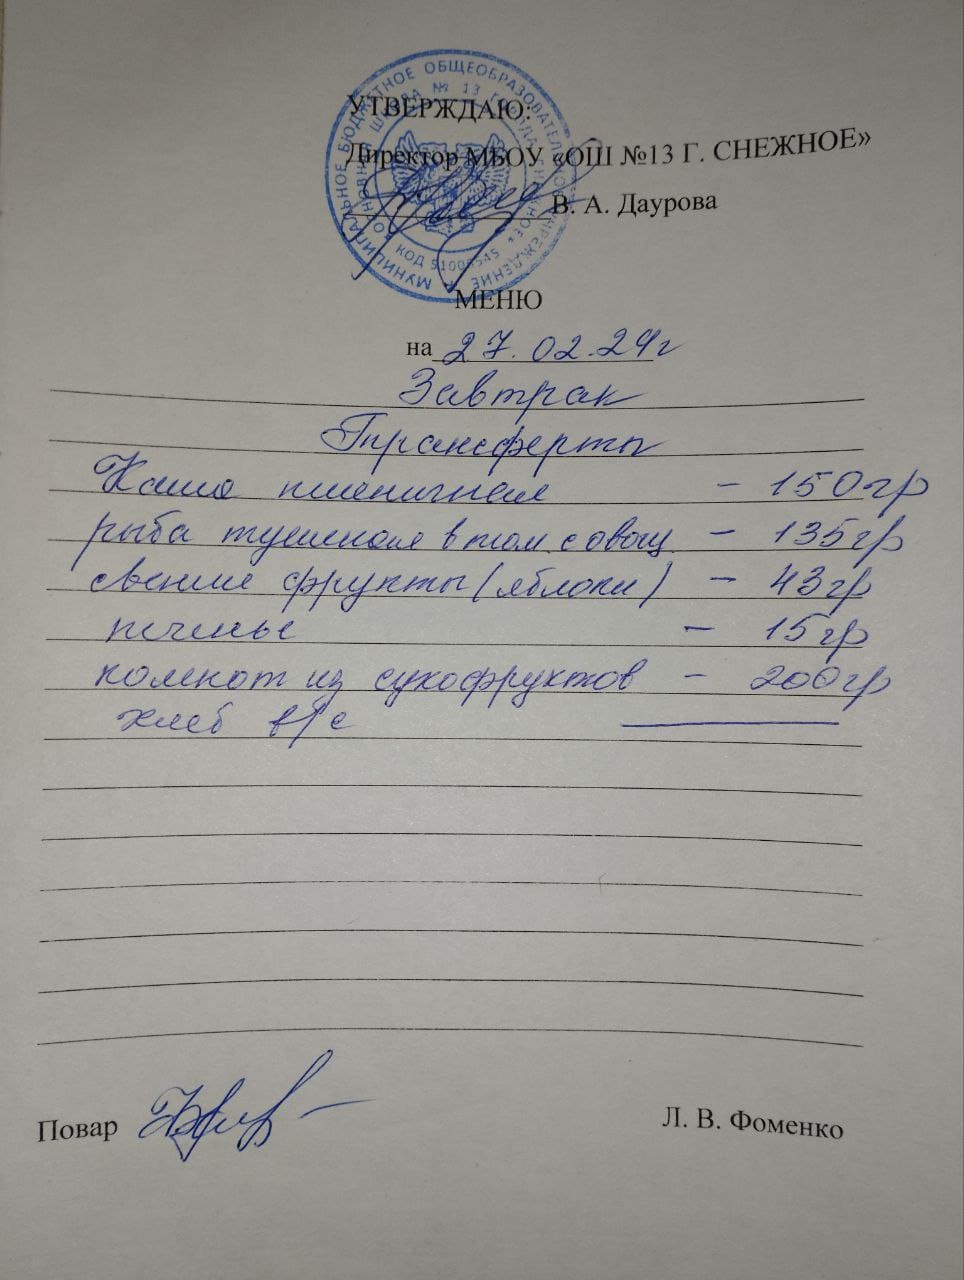 УТВЕРЖДАЮ:
Директор МБОУ «ОШ №13 Г. СНЕЖНОЕ»
В. А. Даурова
МУНИЦИПАЛЬНОЕ БЮДЖЕТНОЕ ОБЩЕОБРАЗОВАТЕЛЬНОЕ УЧРЕЖДЕНИЕ
ШКОЛА № 13 ГОРОДА
КОД
МЕНЮ
на 27.02.24г
Завтрак
Трансферты
Каша пшеничная - 150гр
рыба тушеная в том с овощ - 135гр
свежие фрукты (яблоки) - 43гр
печенье - 15гр
компот из сухофруктов - 200гр
хлеб в/с
Повар
Л. В. Фоменко